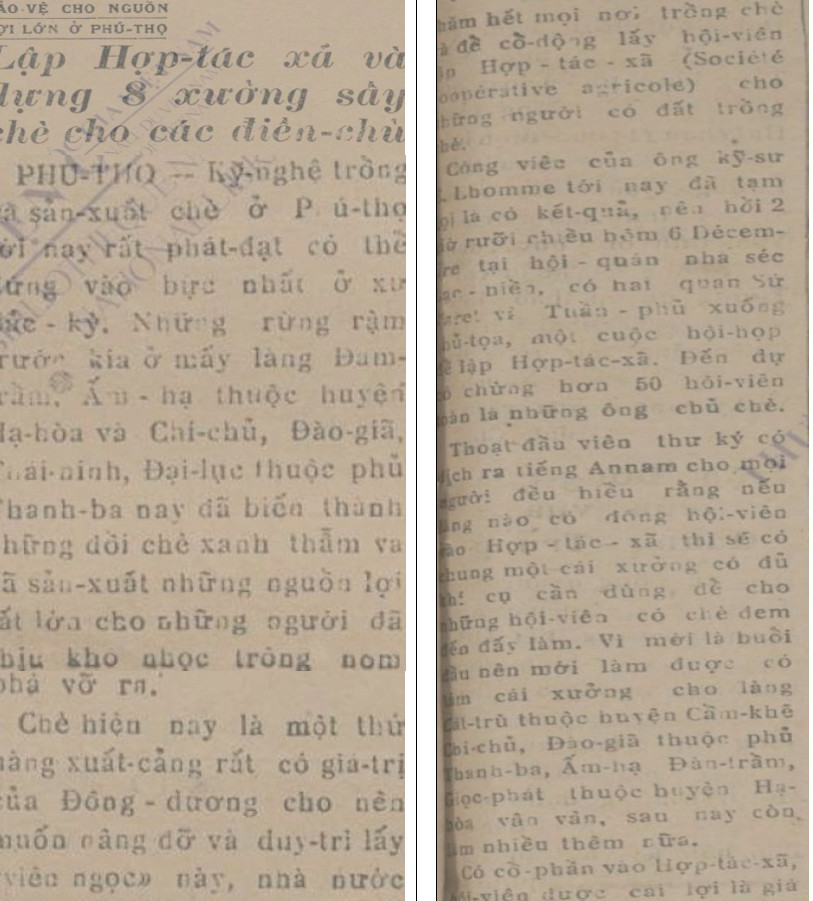 ẢO-VỆ CHO NGUỒN
ỢI LỚN Ở PHÚ-THỌ
Lập Hợp-tác xã và
dựng 8 xưởng sấy
chè cho các điền-chủ
PHÚ-THỌ — Kỹ-nghệ trồng
và sản-xuất chè ở P ú-thọ
ới nay rất phát-đạt có thể
đứng vào bực nhất ở xứ
Bắc - kỳ. Những rừng rậm
trước kia ở mấy làng Đam-
trầm, Ấm - hạ thuộc huyện
Hạ-hòa và Chi-chủ, Đào-giã,
Thái-ninh, Đại-lục thuộc phủ
Thanh-ba nay đã biến thành
những đồi chè xanh thẫm và
đã sản-xuất những nguồn lợi
ất lớn cho những người đã
chịu khó nhọc trông nom
phá vỡ ra.
Chè hiện nay là một thứ
hàng xuất-cảng rất có giá-trị
của Đông - dương cho nên
muốn nâng đỡ và duy-trì lấy
«viên ngọc» này, nhà nước
hăm hết mọi nơi trồng chè
và để cổ-động lấy hội-viên
Hợp - tác - xã (Société
coopérative agricole) cho
những người có đất trồng
chè.
Công việc của ông kỹ-sư
Lhomme tới nay đã tạm
gọi là có kết-quả, nên hồi 2
giờ rưỡi chiều hôm 6 Décem-
bre tại hội - quán nhà séc
nac - niên, có hai quan Sứ
và Tuần - phủ xuống
chủ-tọa, một cuộc hội-họp
để lập Hợp-tác-xã. Đến dự
có chừng hơn 50 hội-viên
toàn là những ông chủ chè.
Thoạt đầu viên thư ký có
dịch ra tiếng Annam cho mọi
người đều hiểu rằng nếu
làng nào có đông hội-viên
vào Hợp - tác - xã thì sẽ có
chung một cái xưởng có đủ
khí cụ cần dùng để cho
những hội-viên có chè đem
đến đấy làm. Vì mới là buổi
đầu nên mới làm được có
tám cái xưởng cho làng
Cát-trù thuộc huyện Cẩm-khê
Chi-chủ, Đào-giã thuộc phủ
Thanh-ba, Ấm-hạ Đàn-trầm,
Giọc-phát thuộc huyện Hạ-
hòa vân vân, sau này còn
làm nhiều thêm nữa.
Có cổ-phần vào Hợp-tác-xã,
hội-viên được cái lợi là giá